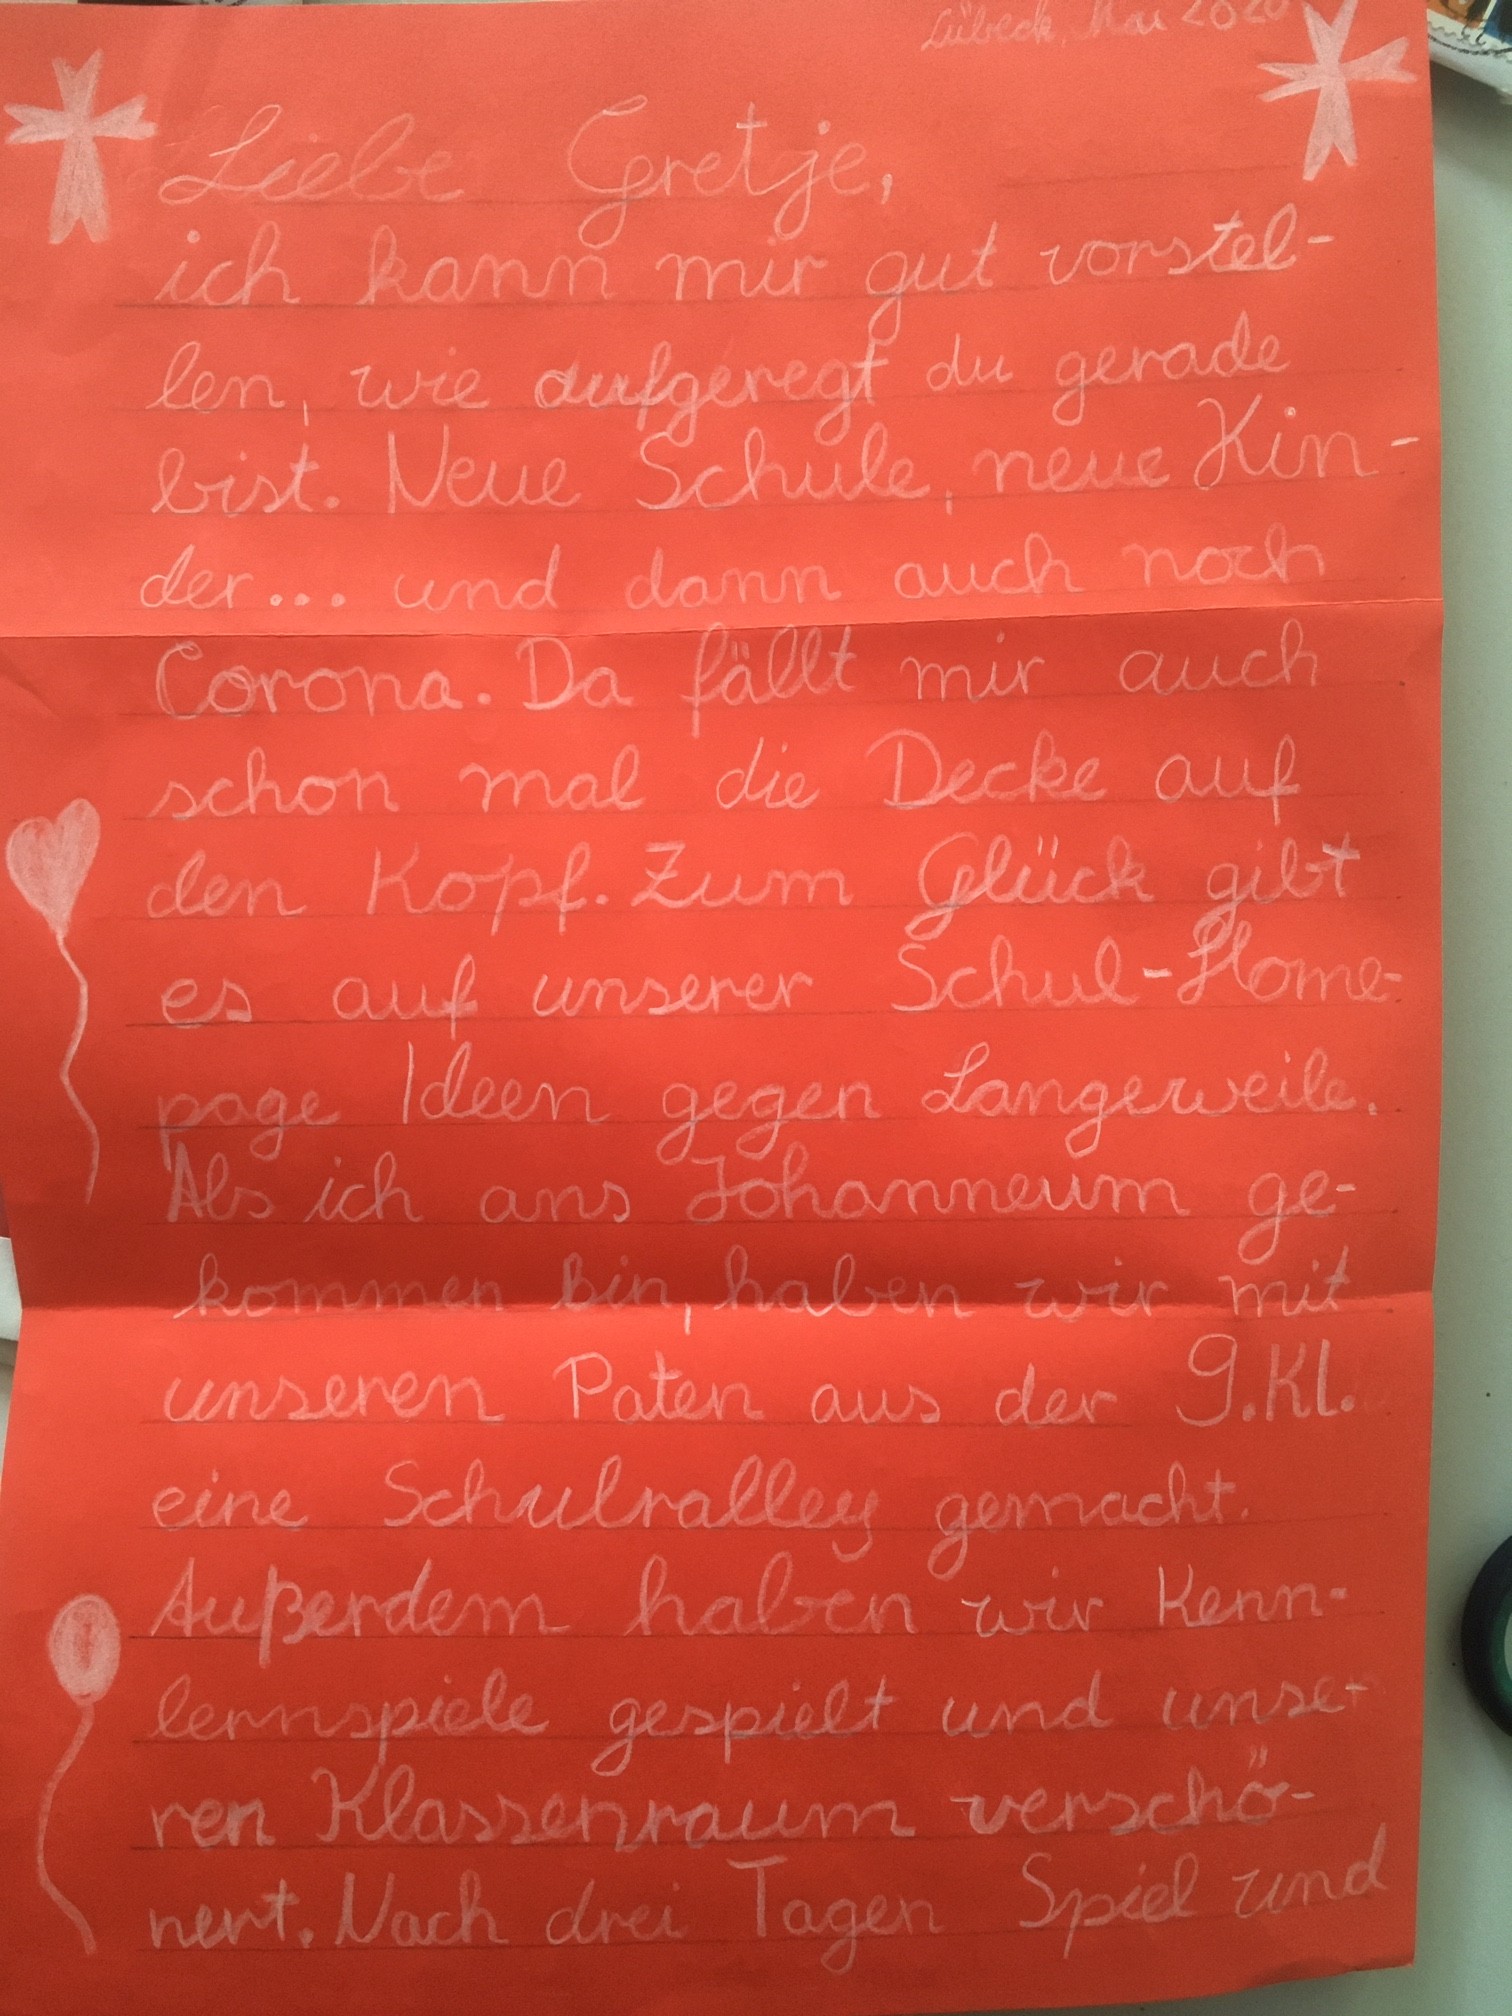 Lübeck, Mai 2020
Liebe Gretje,
ich kann mir gut vorstel-
len, wie aufgeregt du gerade
bist. Neue Schule, neue Kin-
der... und dann auch noch
Corona. Da fällt mir auch
schon mal die Decke auf
den Kopf. Zum Glück gibt
es auf unserer Schul-Home-
page Ideen gegen Langerweile.
Als ich ans Johanneum ge-
kommen bin, haben wir mit
unseren Paten aus der 9.Kl.
eine Schulralley gemacht.
Außerdem haben wir Kenn-
lernspiele gespielt und unse-
ren Klassenraum verschö-
nert. Nach drei Tagen Spiel und